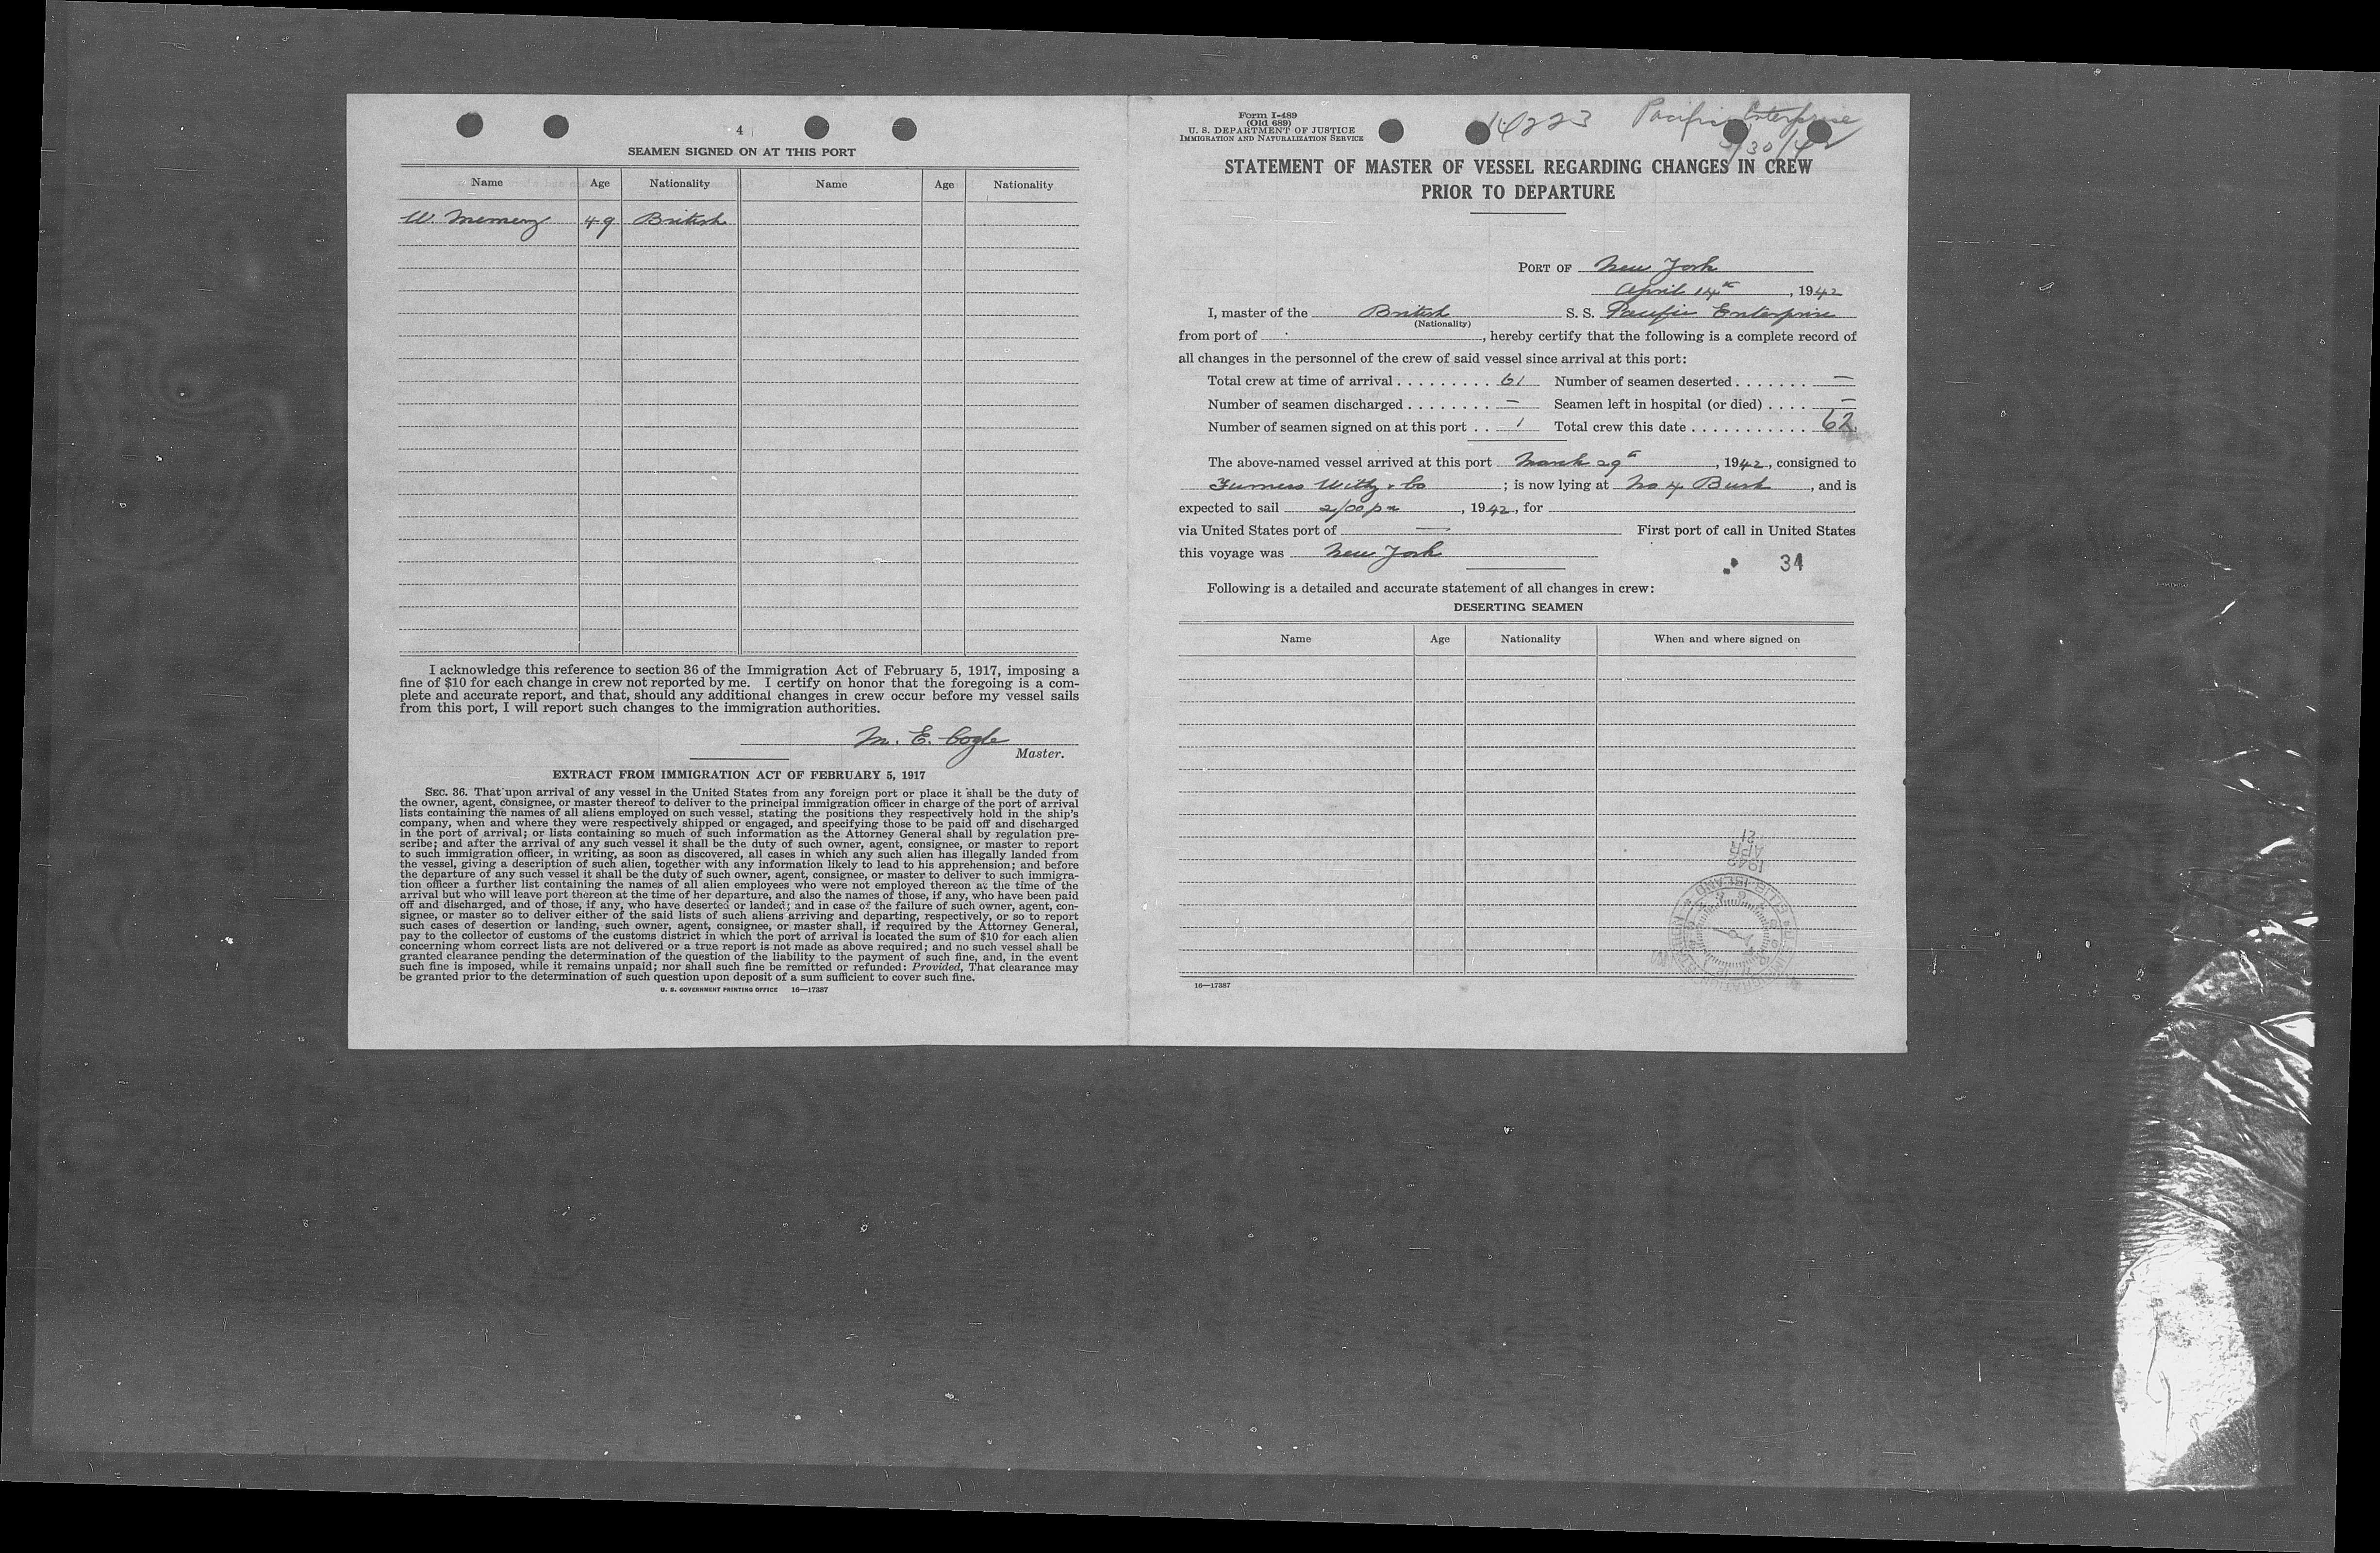 4
SEAMEN SIGNED ON AT THIS PORT
Name Age Nationality Name Age Nationality
W. 49 British
I acknowledge this reference to section 36 of the Immigration Act of February 5, 1917, imposing a
fine of $10 for each change in crew not reported by me. I certify on honor that the foregoing is a com-
plete and accurate report, and that, should any additional changes in crew occur before my vessel sails
from this port, I will report such changes to the immigration authorities.
M. E. Cogle
Master.
EXTRACT FROM IMMIGRATION ACT OF FEBRUARY 5, 1917
SEC. 36. That upon arrival of any vessel in the United States from any foreign port or place it shall be the duty of
the owner, agent, consignee, or master thereof to deliver to the principal immigration officer in charge of the port of arrival
lists containing the names of all aliens employed on such vessel, stating the positions they respectively hold in the ship's
company, when and where they were respectively shipped or engaged, and specifying those to be paid off and discharged
in the port of arrival; or lists containing so much of such information as the Attorney General shall by regulation pre-
scribe; and after the arrival of any such vessel it shall be the duty of such owner, agent, consignee, or master to report
to such immigration officer, in writing, as soon as discovered, all cases in which any such alien has illegally landed from
the vessel, giving a description of such alien, together with any information likely to lead to his apprehension; and before
the departure of any such vessel it shall be the duty of such owner, agent, consignee, or master to deliver to such immigra-
tion officer a further list containing the names of all alien employees who were not employed thereon at the time of the
arrival but who will leave port thereon at the time of her departure, and also the names of those, if any, who have been paid
off and discharged, and of those, if any, who have deserted or landed; and in case of the failure of such owner, agent, con-
signee, or master so to deliver either of the said lists of such aliens arriving and departing, respectively, or so to report
such cases of desertion or landing, such owner, agent, consignee, or master shall, if required by the Attorney General,
pay to the collector of customs of the customs district in which the port of arrival is located the sum of $10 for each alien
concerning whom correct lists are not delivered or a true report is not made as above required; and no such vessel shall be
granted clearance pending the determination of the question of the liability to the payment of such fine, and, in the event
such fine is imposed, while it remains unpaid; nor shall such fine be remitted or refunded: Provided, That clearance may
be granted prior to the determination of such question upon deposit of a sum sufficient to cover such fine.
U. S. GOVERNMENT PRINTING OFFICE 16—17387
Form I-489
(Old 689)
U. S. DEPARTMENT OF JUSTICE
IMMIGRATION AND NATURALIZATION SERVICE
Pacific Enterprise
3/30/42
STATEMENT OF MASTER OF VESSEL REGARDING CHANGES IN CREW
PRIOR TO DEPARTURE
PORT OF New York
April 14th, 1942
I, master of the British S. S. Pacific Enterprise
(Nationality)
from port of , hereby certify that the following is a complete record of
all changes in the personnel of the crew of said vessel since arrival at this port:
Total crew at time of arrival . . . . . . . . . 61 Number of seamen deserted . . . . . . . —
Number of seamen discharged . . . . . . . . — Seamen left in hospital (or died) . . . . —
Number of seamen signed on at this port . . 1 Total crew this date . . . . . . . . . . . 62
The above-named vessel arrived at this port March 29th, 1942, consigned to
Furness Withy & Co ; is now lying at No 4 Bush , and is
expected to sail 2/00 pm , 1942, for
via United States port of — First port of call in United States
this voyage was New York
34
Following is a detailed and accurate statement of all changes in crew:
DESERTING SEAMEN
Name Age Nationality When and where signed on
1942
APR
21
ELLIS ISLAND
16—17387